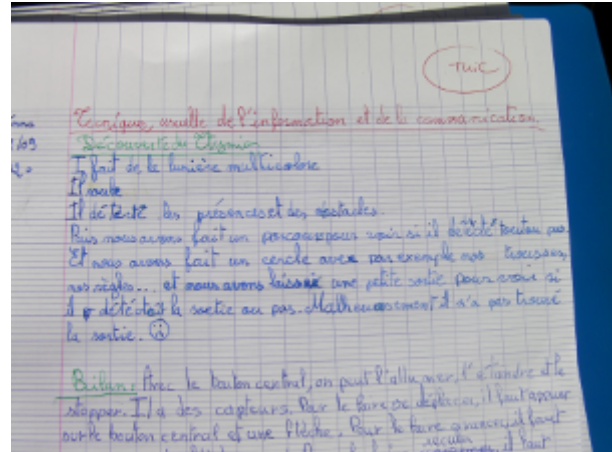 TUIC
Tecnique usuelle de l'information et de la communication.
Découverte du Thymio
/09
I fait de la lumière multicolore
Il roule
Il détecte les présences et des obstacles.
Puis nous avons fait un parcours pour voir si il détecté tout ou pas.
Et nous avons fait un cercle avec par exemple nos trousses,
nos règles... et nous avons laissé une petite sortie pour voir si
il détéctait la sortie ou pas. Malheureusement il n'a pas trouvé
la sortie.
Bilan: Avec le bouton central, on peut l'allumer, l'étandre et le
stopper. Il a des capteurs. Pour le faire se déplacer, il faut appuier
sur le bouton central et une flèche. Pour le faire avancer, il faut
reculer
il faut